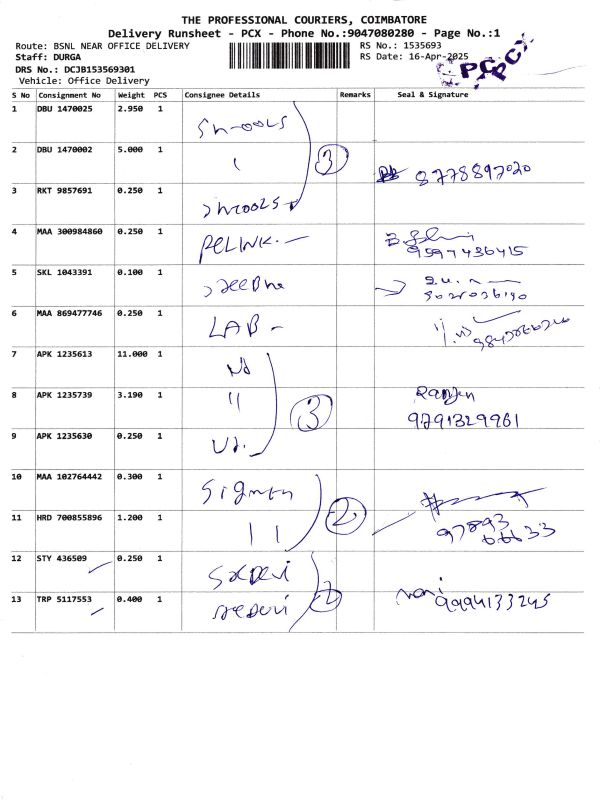 THE PROFESSIONAL COURIERS, COIMBATORE
Delivery Runsheet - PCX - Phone No.:9047080280 - Page No.:1
Route: BSNL NEAR OFFICE DELIVERY
RS No.: 1535693
Staff: DURGA
RS Date: 16-Apr-2025
DRS No.: DCJB153569301
Vehicle: Office Delivery
PCX
S No Consignment No Weight PCS Consignee Details Remarks Seal & Signature
1 DBU 1470025 2.950 1
2 DBU 1470002 5.000 1 3 8778897020
3 RKT 9857691 0.250 1
4 MAA 300984860 0.250 1 PELINK. 9597436415
5 SKL 1043391 0.100 1
6 MAA 869477746 0.250 1 LAB -
7 APK 1235613 11.000 1
8 APK 1235739 3.190 1 11 3 Ranjen
9791329961
9 APK 1235630 0.250 1
10 MAA 102764442 0.300 1
11 HRD 700855896 1.200 1 11 2 97893
66633
12 STY 436509 0.250 1
13 TRP 5117553 0.400 1 2 9994133245